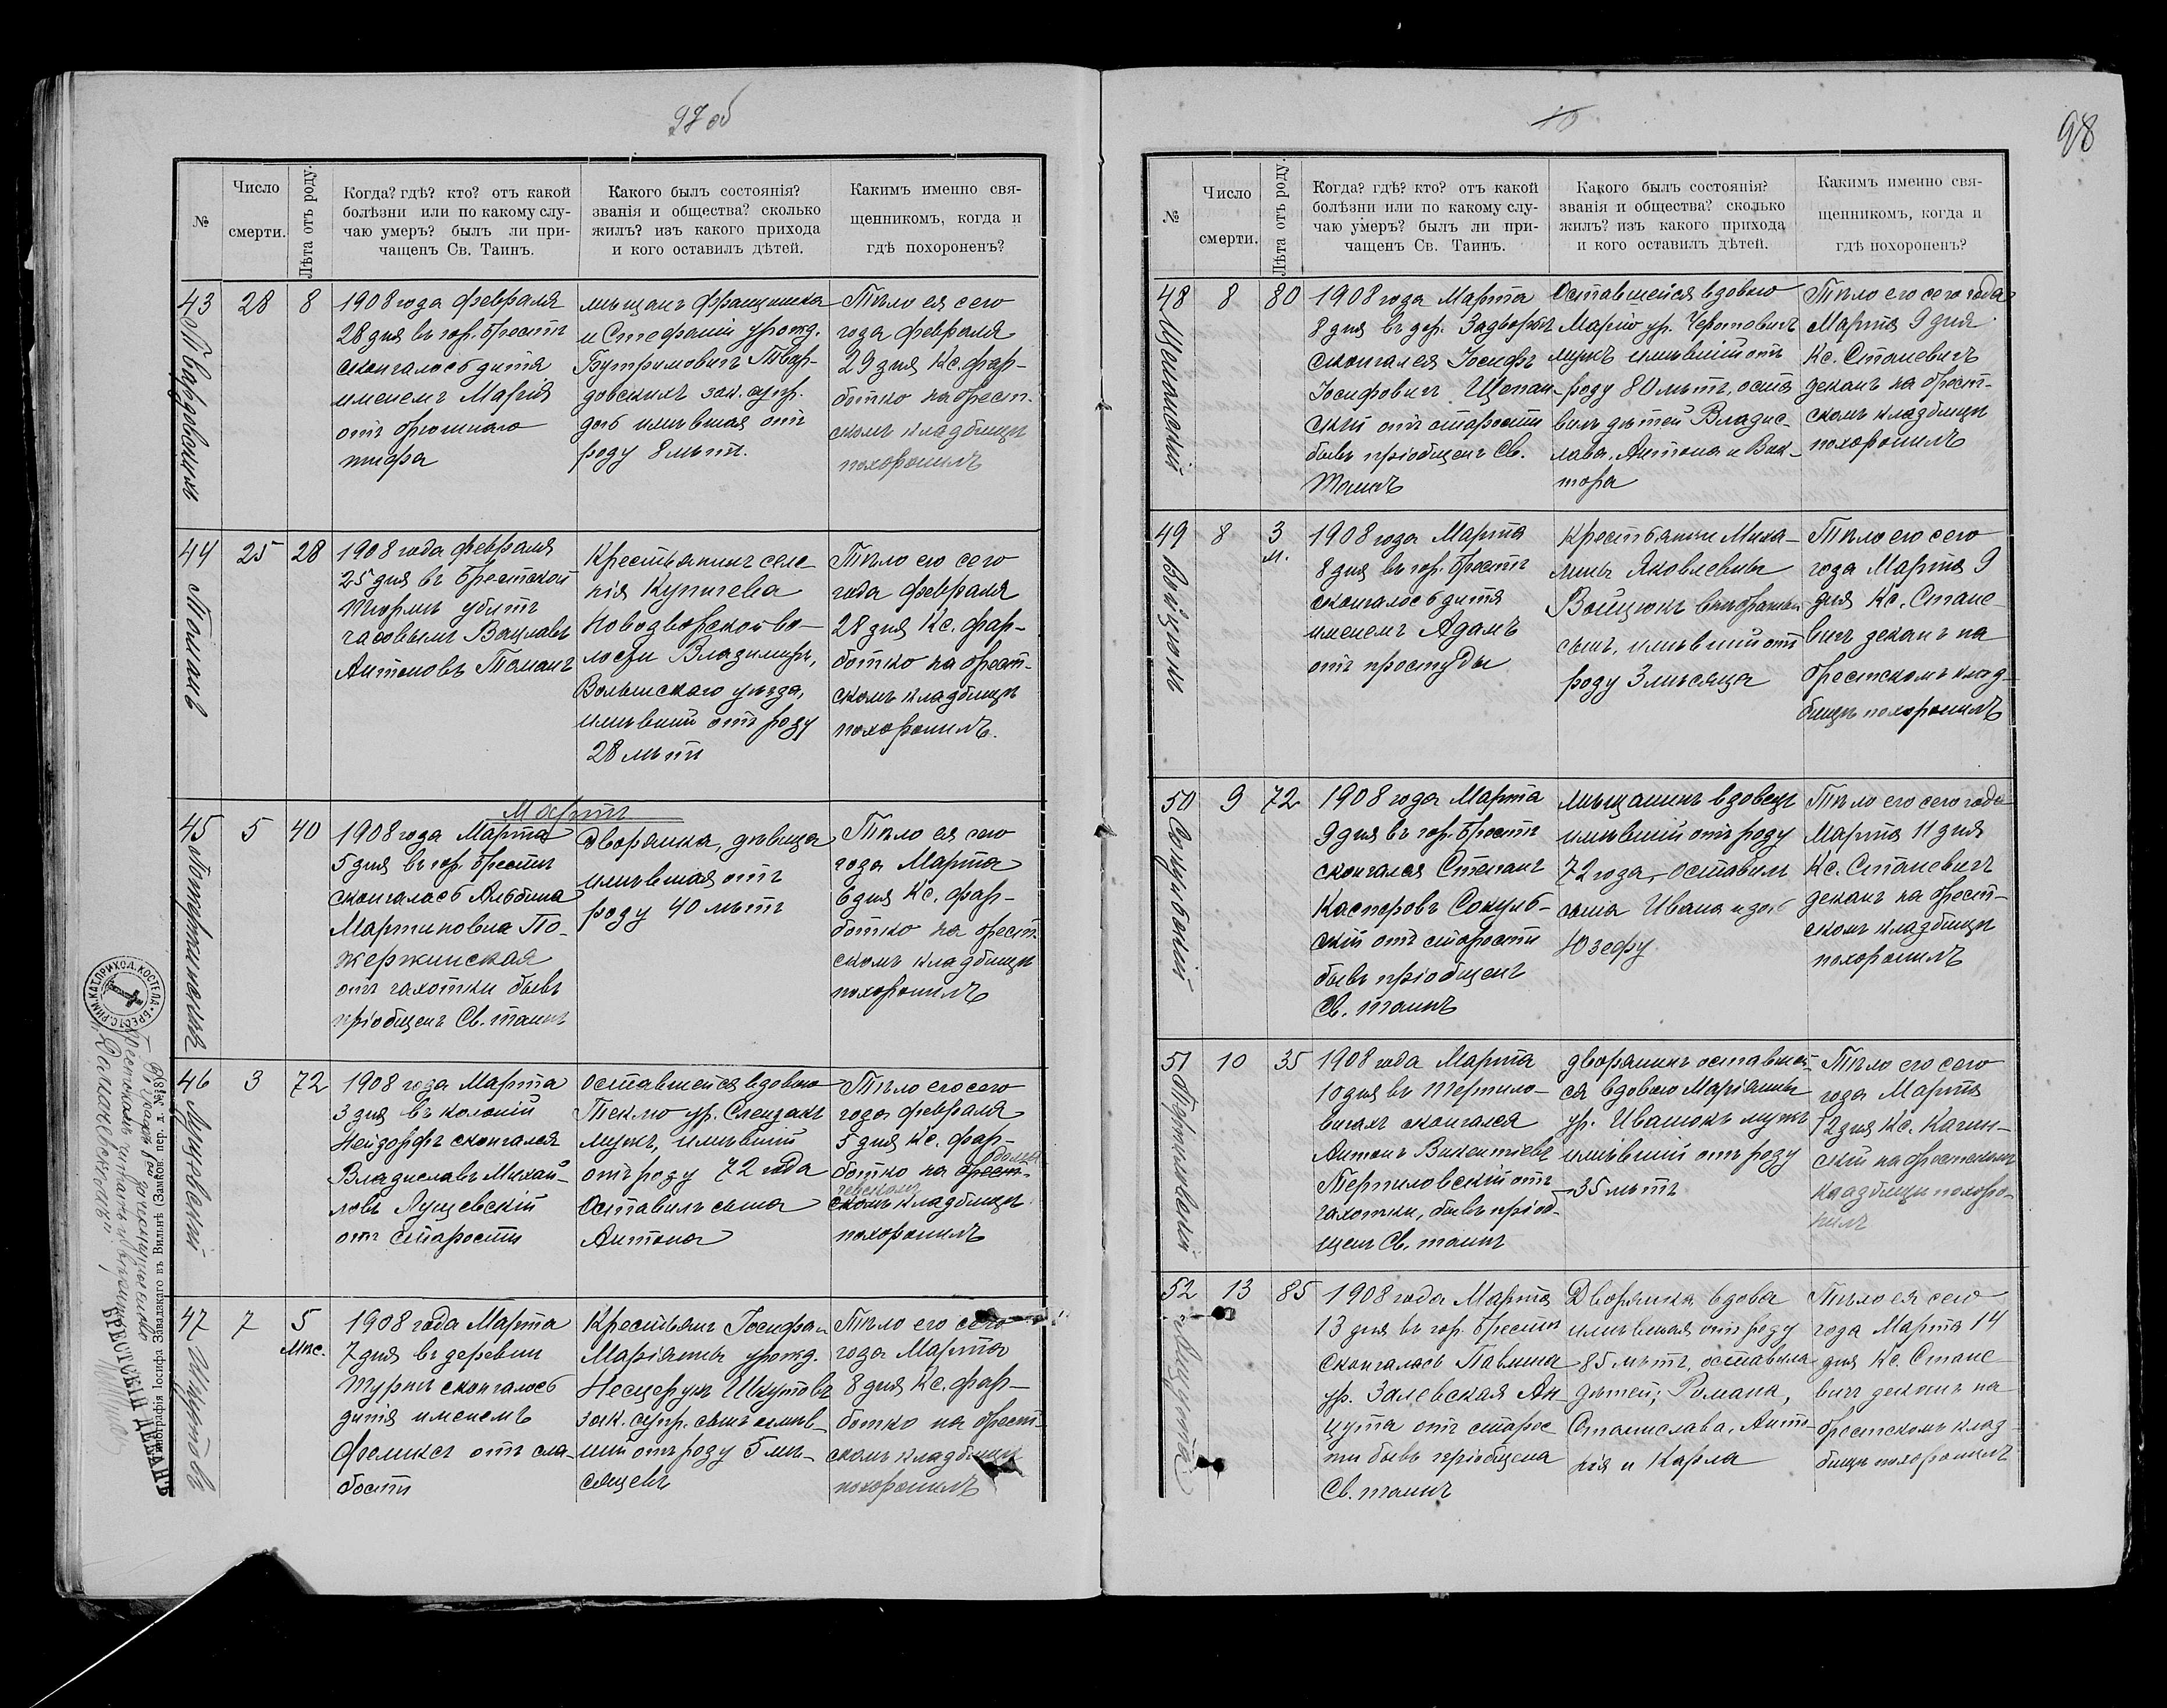 97 об
№
Число
смерти.
Лѣта отъ роду.
Когда? гдѣ? кто? отъ какой
болѣзни или по какому слу-
чаю умеръ? былъ ли при-
чащенъ Св. Таинъ.
Какого былъ состоянія?
званія и общества? сколько
жилъ? изъ какого прихода
и кого оставилъ дѣтей.
Какимъ именно свя-
щенникомъ, когда и
гдѣ похороненъ?
43
28
8
1908 года февраля
28 дня въ гор. Брестѣ
скончалось дитя
именемъ Марія
отъ брюшнаго
тифа
мѣщанъ Францишка
и Стефаніи урожд.
Бутримовичъ Твар-
довскихъ зак. супр.
дочь имѣвшая отъ
роду 8 лѣтъ.
Тѣло ея сего
года февраля
29 дня Кс. Фар-
ботко на Брест-
скомъ кладбищѣ
похоронилъ
44
Томанъ
25
28
1908 года февраля
25 дня въ Брестской
тюрьмѣ убитъ
часовымъ Вацлавъ
Антоновъ Томанъ
Крестьянинъ селе-
нія Купичева
Новодворской во-
лости Владимиръ,
Волынскаго уѣзда,
имѣвшій отъ роду
28 лѣтъ
Тѣло его сего
года февраля
28 дня Кс. Фар-
ботко на Брест-
скомъ кладбищѣ
похоронилъ.
Мартъ
45
5
40
1908 года Марта
5 дня въ гор. Брестѣ
скончалась Альбина
Мартиновна По-
жержинская
отъ чахотки бывъ
пріобщенъ Св. таинъ
Дворянка, дѣвица
имѣвшая отъ
роду 40 лѣтъ
Тѣло ея сего
года Марта
6 дня Кс. Фар-
ботко на Брест-
скомъ кладбищѣ
похоронилъ
46
Лущевскій
3
72
1908 года Марта
3 дня въ колоніи
Нейдорфъ скончался
Владиславъ Михай-
ловъ Лущевскій
отъ старости
Оставшейся вдовою
Теклю ур.
мужъ, имѣвшій
отъ роду 72 года
Оставилъ сына
Антона
Тѣло его сего
года февраля
5 дня Кс. Фар-
ботко на Брест-
скомъ кладбищѣ
похоронилъ
47
Шкутовъ
7
5
мѣс.
1908 года Марта
7 дня въ деревни
Турнѣ скончалось
дитя именемъ
Феликсъ отъ сла-
бости
Крестьянъ Іосифа и
Маріанны урожд.
Несцерукъ Шкутовъ
зак. супр. сынъ имѣв-
шій отъ роду 5 мѣ-
сяцевъ
Тѣло его сего
года Марта
8 дня Кс. Фар-
ботко на Брест-
скомъ кладбищѣ
похоронилъ
РИМ. КАТ. ПРИХОД. КОСТЕЛА БРЕСТС.
Типографія Іосифа Завадзкаго въ Вильнѣ (Замков. пер. д. №8)
БРЕСТСКІЙ ДЕКАНЪ
98
№
Число
смерти.
Лѣта отъ роду.
Когда? гдѣ? кто? отъ какой
болѣзни или по какому слу-
чаю умеръ? былъ ли при-
чащенъ Св. Таинъ.
Какого былъ состоянія?
званія и общества? сколько
жилъ? изъ какого прихода
и кого оставилъ дѣтей.
Какимъ именно свя-
щенникомъ, когда и
гдѣ похороненъ?
48
Щепанскій
8
80
1908 года Марта
8 дня въ дер. Задворцѣ
скончался Іосифъ
Іосифовичъ Щепан-
скій отъ старости
бывъ пріобщенъ Св.
Таинъ
Оставшейся вдовою
Марію ур.
мужъ имѣвшій отъ
роду 80 лѣтъ, оста
вилъ дѣтей Владис-
лава, Антона и Вик-
тора
Тѣло его сего года
Марта 9 дня
Кс. Станевичъ
деканъ на Брест-
скомъ кладбищѣ
похоронилъ
49
Войцюкъ
8
3
м.
1908 года Марта
8 дня въ гор. Брестѣ
скончалось дитя
именемъ Адамъ
отъ простуды
Крестьянки Миха-
лины Яковлевны
Войцюкъ внѣбрачный
сынъ, имѣвшій отъ
роду 3 мѣсяца
Тѣло его сего
года Марта 9
дня Кс. Стане-
вичъ деканъ на
Брестскомъ клад-
бищѣ похоронилъ
50
Сокульскій
9
72
1908 года Марта
9 дня въ гор. Брестѣ
скончался Степанъ
Касперовъ Сокуль-
скій отъ старости
бывъ пріобщенъ
Св. таинъ
мѣщанинъ вдовецъ
имѣвшій отъ роду
72 года, оставилъ
сына Ивана и дочь
Юзефу
Тѣло его сего года
Марта 11 дня
Кс. Станевичъ
деканъ на Брест-
скомъ кладбищѣ
похоронилъ
51
Пертиловскій
10
35
1908 года Марта
10 дня въ Терпило-
вичахъ скончался
Антонъ Викентіевъ
Терпиловскій отъ
чахотки, бывъ пріоб-
щенъ Св. таинъ
дворянинъ оставшей-
ся вдовою Маріанны
ур. Ивашокъ мужъ
имѣвшій отъ роду
35 лѣтъ
Тѣло его сего
года Марта
12 дня Кс. Качин-
скій на Брестскомъ
кладбищѣ похоро-
нилъ
52
Анцута
13
85
1908 года Марта
13 дня въ гор. Брестѣ
скончалась Павлина
ур. Залевская Ан-
цута отъ старос
ти бывъ пріобщена
Св. таинъ
Дворянка вдова
имѣвшая отъ роду
85 лѣтъ, оставила
дѣтей; Романа,
Станислава, Анто-
нія и Карла
Тѣло ея сего
года Марта 14
дня Кс. Стане-
вичъ деканъ на
Брестскомъ клад-
бищѣ похоронилъ